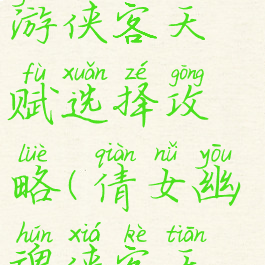 游侠客天
fù xuǎn zé gōng
赋选择攻
lüè qiàn nǚ yōu
略(倩女幽
hún xiá kè tiān
魂侠客天